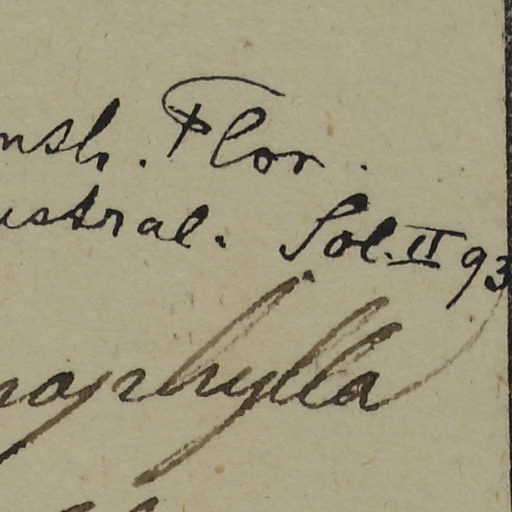 nth. Flor.
ustral. Vol. II 93
naphylla